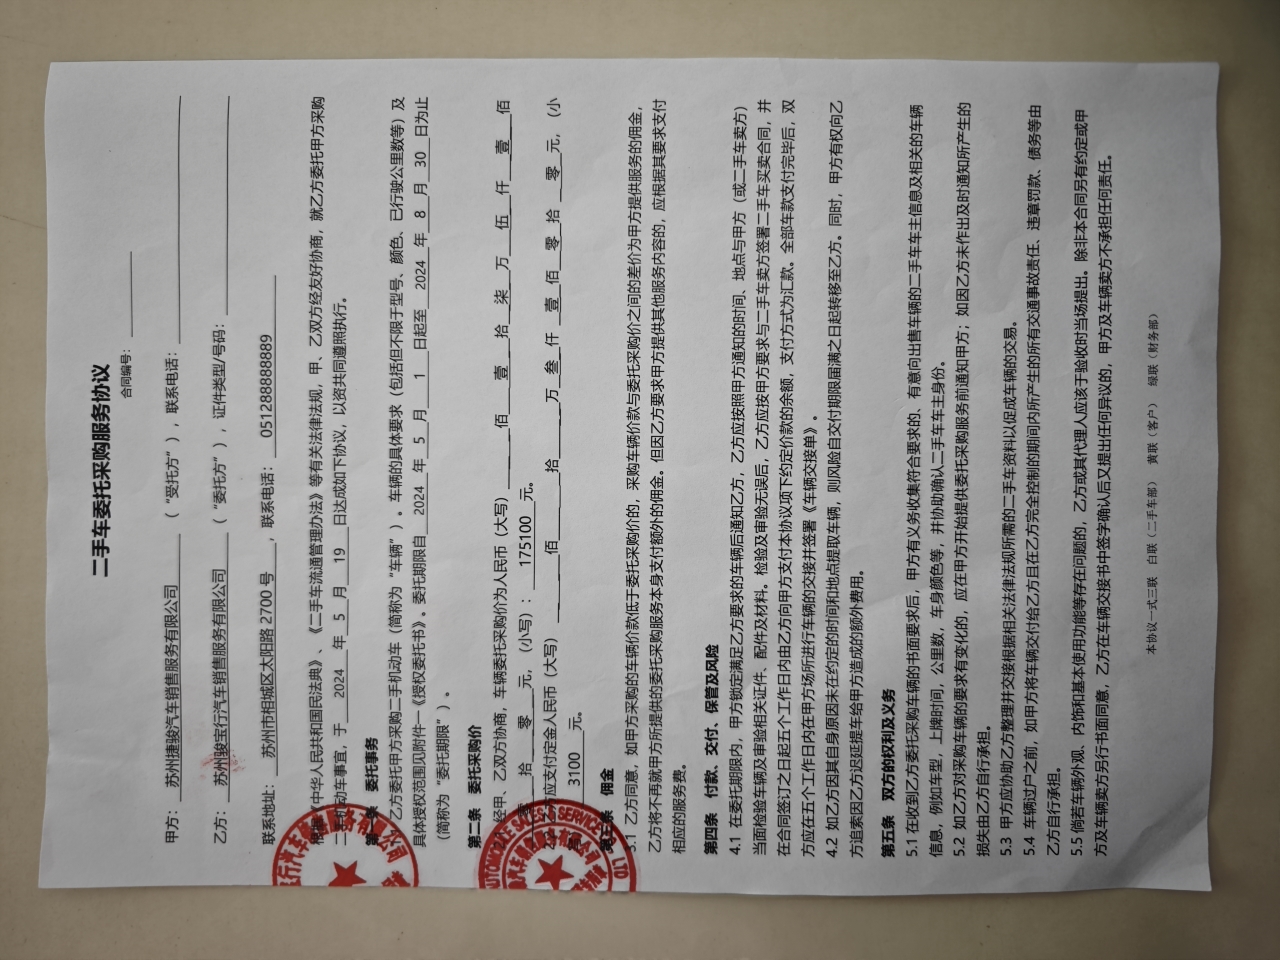 二手车委托采购服务协议
合同编号：
甲方：苏州捷骏汽车销售服务有限公司（“受托方”），联系电话：
乙方：苏州骏宝行汽车销售服务有限公司（“委托方”），证件类型/号码：
联系地址：苏州市相城区太阳路 2700 号，联系电话：051288888889
根据《中华人民共和国民法典》、《二手车流通管理办法》等有关法律法规，甲、乙双方经友好协商，就乙方委托甲方采购
二手机动车事宜，于 2024 年 5 月 19 日达成如下协议，以资共同遵照执行。
第一条 委托事务
乙方委托甲方采购二手机动车（简称为“车辆”）。车辆的具体要求（包括但不限于型号、颜色、已行驶公里数等）及
具体授权范围见附件一《授权委托书》。委托期限自 2024 年 5 月 1 日起至 2024 年 8 月 30 日为止
（简称为“委托期限”）。
第二条 委托采购价
经甲、乙双方协商，车辆委托采购价为人民币（大写） 佰 壹 拾 柒 万 伍 仟 壹 佰
零 拾 零 元，（小写）：175100 元。
方应支付定金人民币（大写） 佰 拾 万 叁 仟 壹 佰 零 拾 零 元，（小
3100 元。
第三条 佣金
3.1 乙方同意，如甲方采购的车辆价款低于委托采购价的，采购车辆价款与委托采购价之间的差价为甲方提供服务的佣金，
乙方将不再就甲方所提供的委托采购服务本身支付额外的佣金。但因乙方要求甲方提供其他服务内容的，应根据其要求支付
相应的服务费。
第四条 付款、交付、保管及风险
4.1 在委托期限内，甲方锁定满足乙方要求的车辆后通知乙方，乙方应按照甲方通知的时间、地点与甲方（或二手车卖方）
当面检验车辆及审验相关证件、配件及材料。检验及审验无误后，乙方应按甲方要求与二手车卖方签署二手车买卖合同，并
在合同签订之日起五个工作日内由乙方向甲方支付本协议项下约定价款的余额，支付方式为汇款。全部车款支付完毕后，双
方应在五个工作日内在甲方场所进行车辆的交接并签署《车辆交接单》。
4.2 如乙方因其自身原因未在约定的时间和地点提取车辆，则风险自交付期限届满之日起转移至乙方。同时，甲方有权向乙
方追索因乙方迟延提车给甲方造成的额外费用。
第五条 双方的权利及义务
5.1 在收到乙方委托采购车辆的书面要求后，甲方有义务收集符合要求的、有意向出售车辆的二手车车主信息及相关的车辆
信息，例如车型，上牌时间，公里数，车身颜色等，并协助确认二手车车主身份。
5.2 如乙方对采购车辆的要求有变化的，应在甲方开始提供委托采购服务前通知甲方；如因乙方未作出及时通知所产生的
损失由乙方自行承担。
5.3 甲方应协助乙方整理并交接根据相关法律法规所需的二手车资料以促成车辆的交易。
5.4 车辆过户之前，如甲方将车辆交付给乙方且在乙方完全控制的期间内所产生的所有交通事故责任、违章罚款、债务等由
乙方自行承担。
5.5 倘若车辆外观、内饰和基本使用功能等存在问题的，乙方或其代理人应该于验收时当场提出。除非本合同另有约定或甲
方及车辆卖方另行书面同意，乙方在车辆交接书中签字确认后又提出任何异议的，甲方及车辆卖方不承担任何责任。
本协议一式三联 白联（二手车部） 黄联（客户） 绿联（财务部）